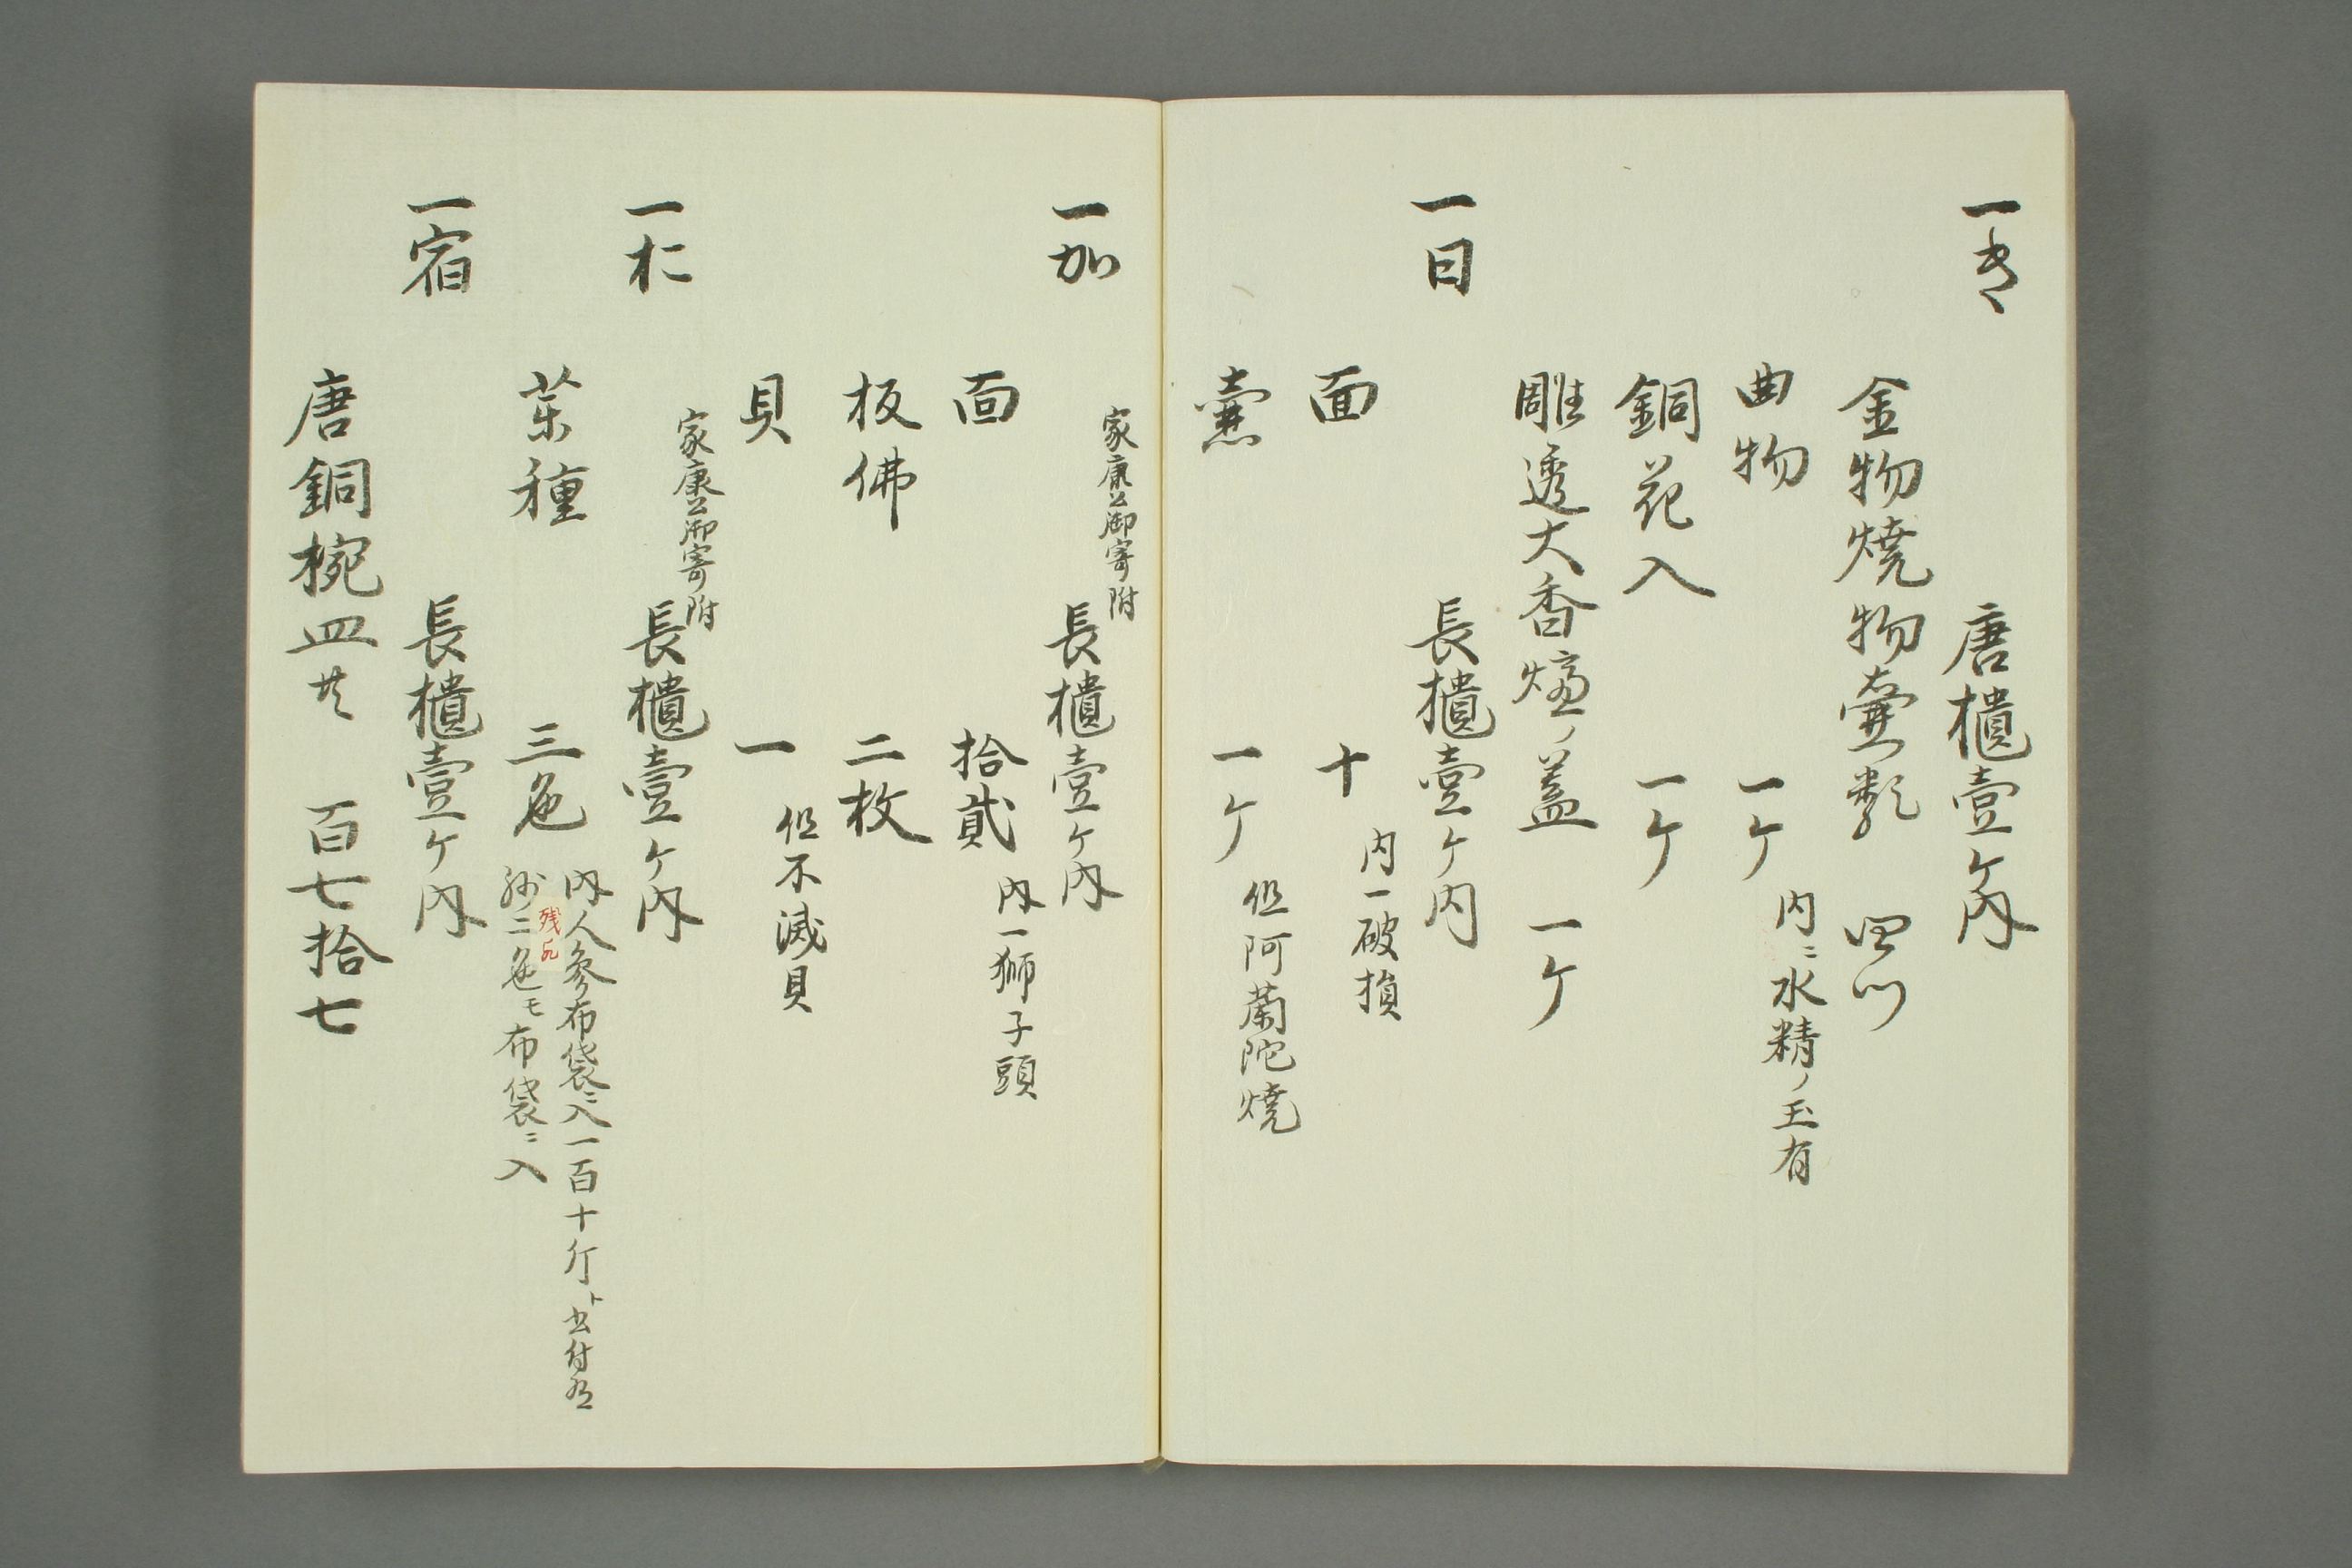 一き
唐櫃壹ケ内
金物燒物壷類 四ツ
曲物 一ケ 内ニ水精ノ玉有
銅花入 一ケ
雕透大香爐ノ蓋 一ケ
一日
長櫃壹ケ内
面 十 内一破損
壷 一ケ 但阿蘭陀燒
一加
家康公御寄附
長櫃壹ケ内
面 拾貳 内一獅子頭
板佛 二枚
貝 一 但不滅貝
一仁
家康公御寄附
長櫃壹ケ内
薬種 三色 内人参布袋ニ入一百十斤ト書付有
二色モ布袋ニ入
残
一宿
長櫃壹ケ内
唐銅椀皿共 百七拾七